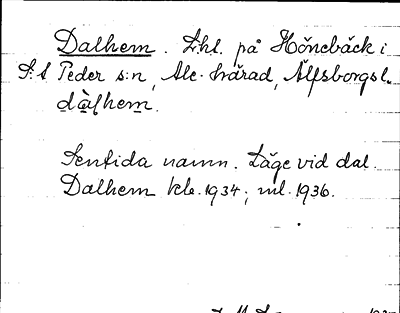 Dalhem. Lht. på Hönebäck i
S:t Peder s:n, Ale-härad, Älfsborgs l.
dàlhem.
Sentida namn. Läge vid dal.
Dalhem kbr. 1934; ml. 1936.